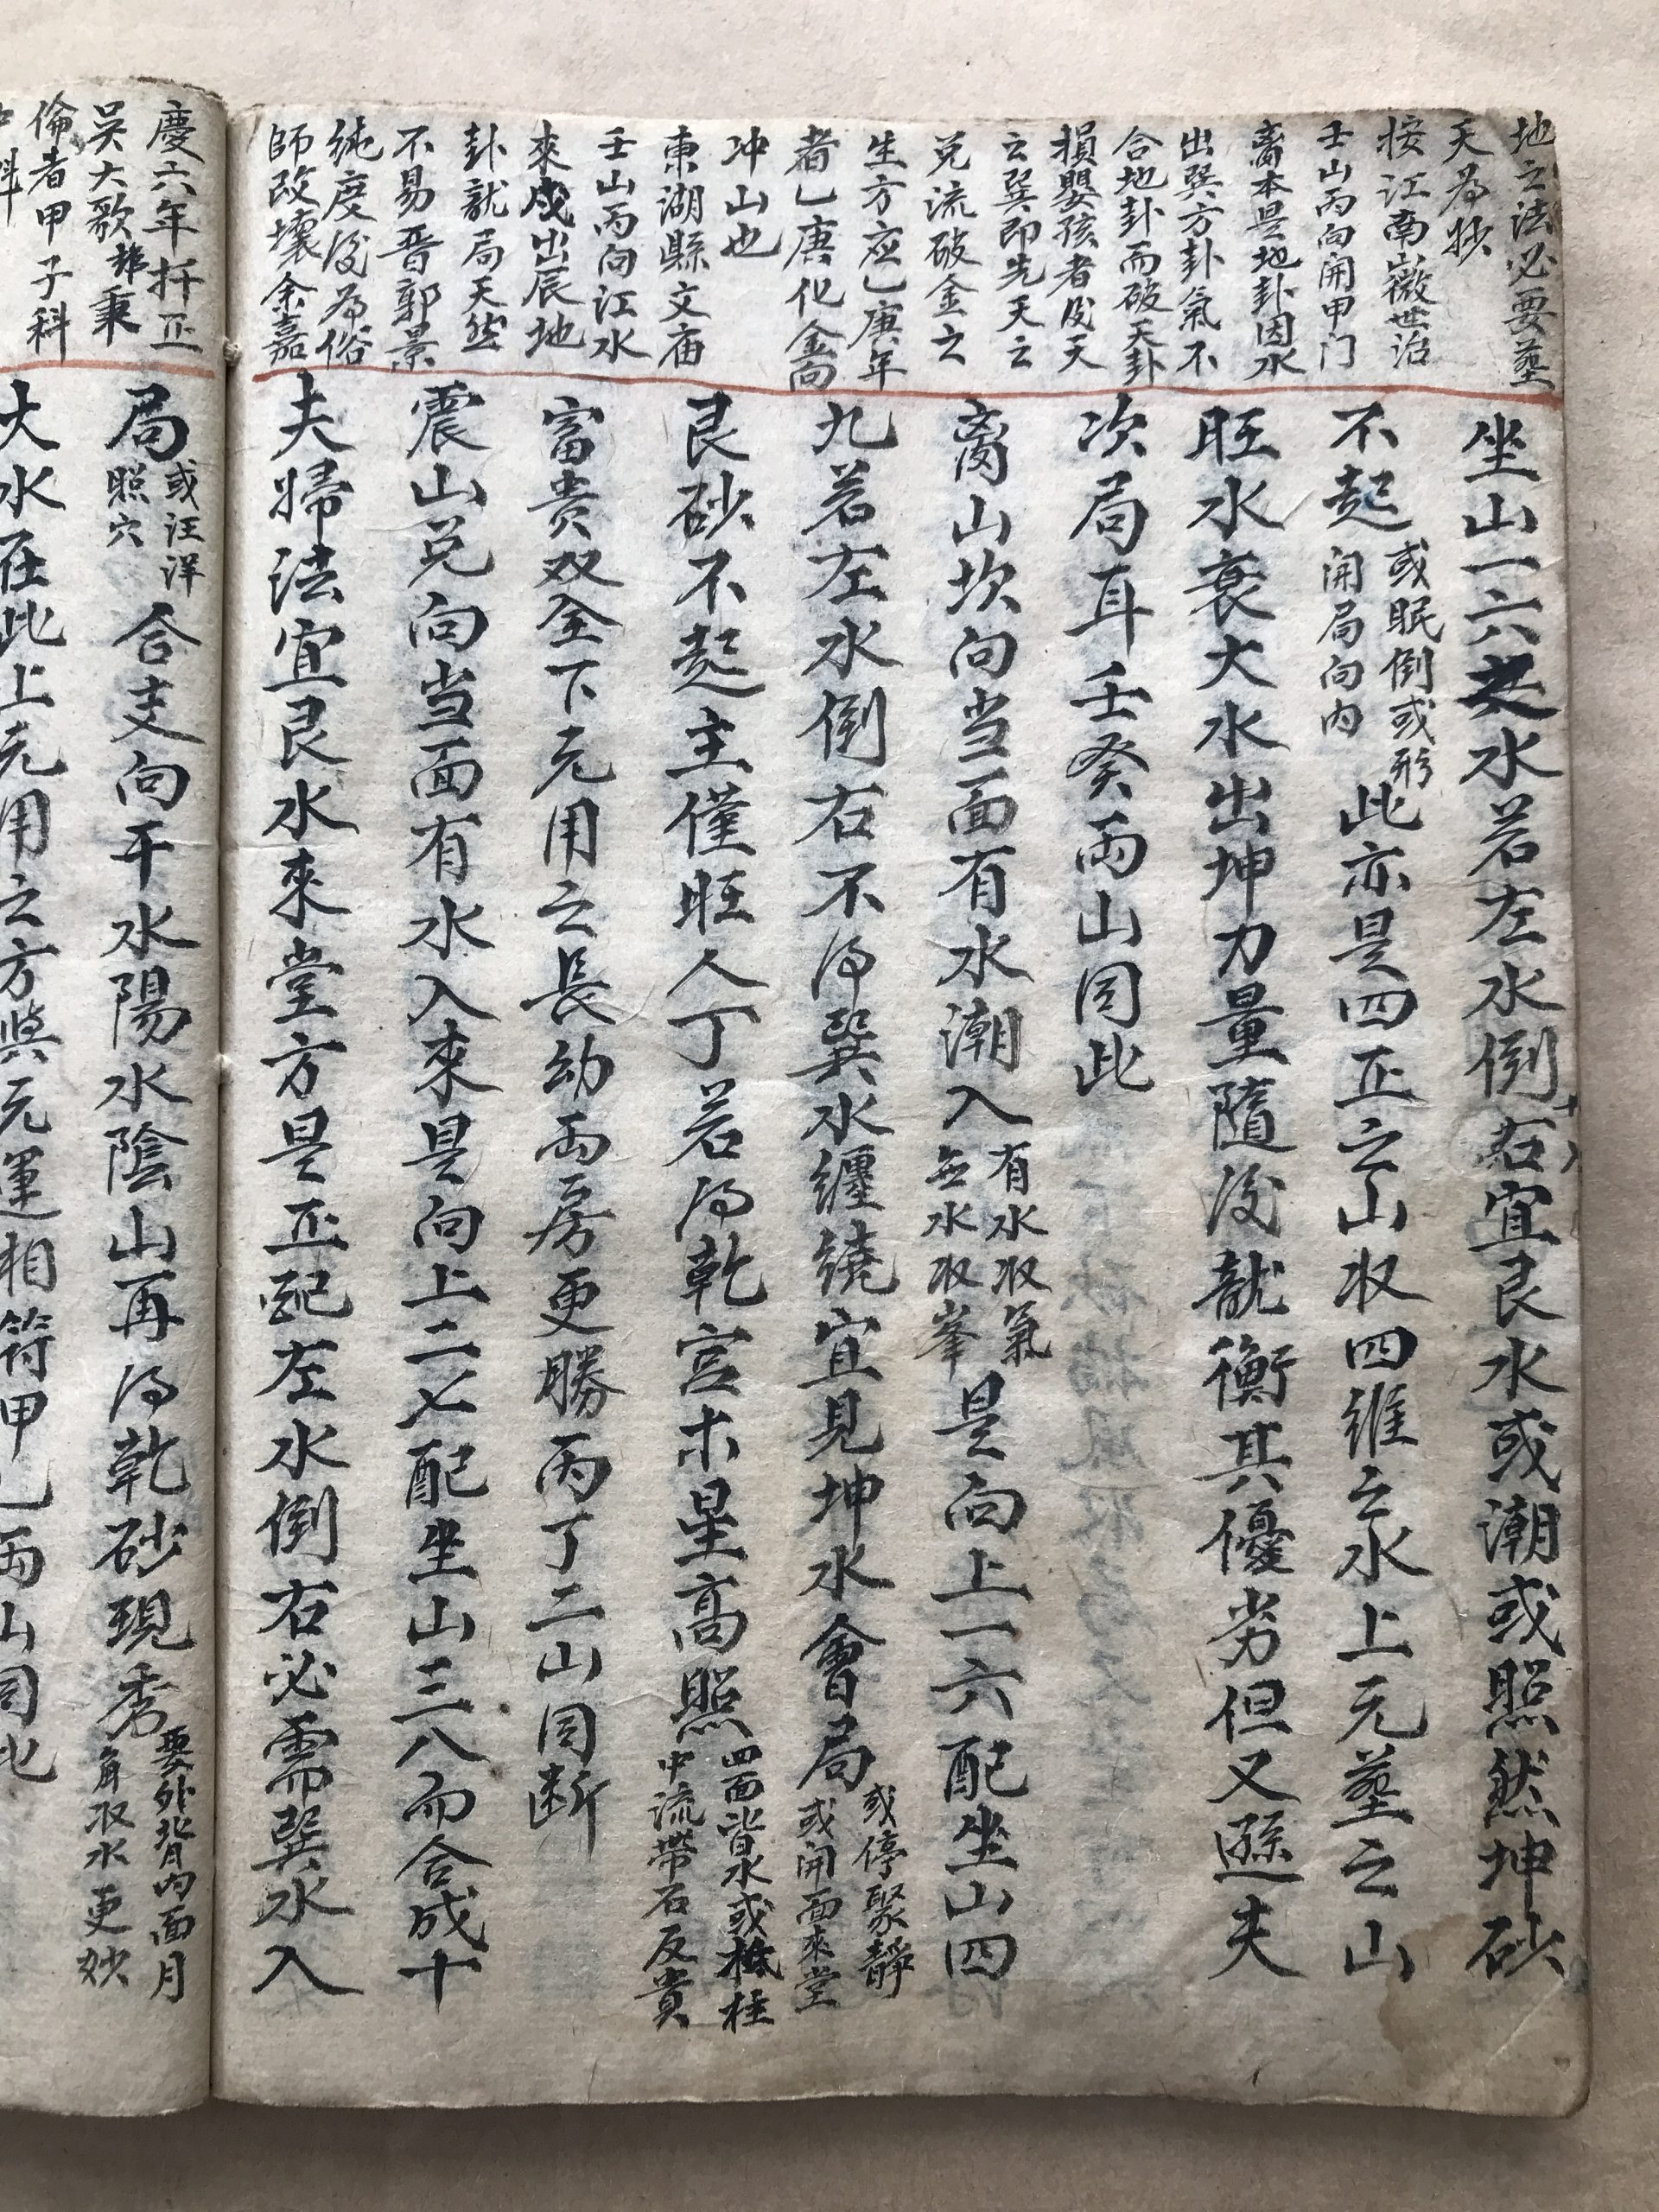 地之法必要塟
天為妙
按江南山嶶世治
壬山丙向開甲门
畜本是地卦因水
出巽方卦氣不
合地卦而破天卦
損嬰孩者後天
云巽即先天之
兌流破金之
生方应乙庚年
者乙庚化金向
冲山也
東湖縣文庙
壬山丙向江水
來戌出辰地
卦龍局天然
不易晋郭景
純度後為俗
師改壞余嘉
坐山一六水若左水倒右宜艮水或潮或照然坤砂
不起或眠倒或形開局向内此亦是四正之山收四維之水上元塟之山
旺水衰大水出坤力量隨後龍衡其優劣但又遜夫
次局耳壬癸兩山同此
离山坎向当面有水潮入有水收氣無水收峯是向上一六配坐山四
九若左水倒右不得巽水纏繞宜見坤水會局或停聚靜或開面來堂
艮砂不起主僅旺人丁若得乾宮木星高照四面皆水或抵柱中流帶石反貴
富贵双全下元用之長幼兩房更勝丙丁二山同断
震山兌向当面有水入來是向上二七配坐山三八而合成十
夫婦法宜艮水來堂方是正配左水倒右必需巽水入
慶六年扦正
吴大歌雄秉
倫者甲子科
局或汪洋照穴合支向干水陽水陰山再得乾砂現秀要外背内面月角收水更妙
大水在此上元用之方與元運相符甲乙兩山同此